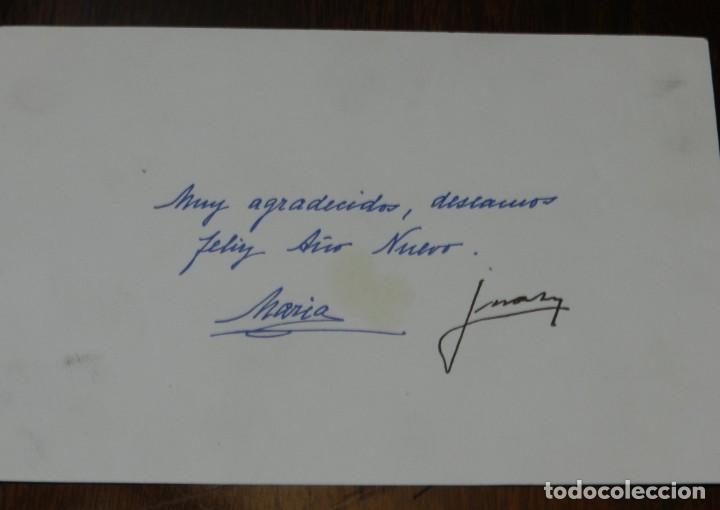 Muy agradecidos, deseamos
feliz Año Nuevo.
Maria Juan
todocoleccion.net